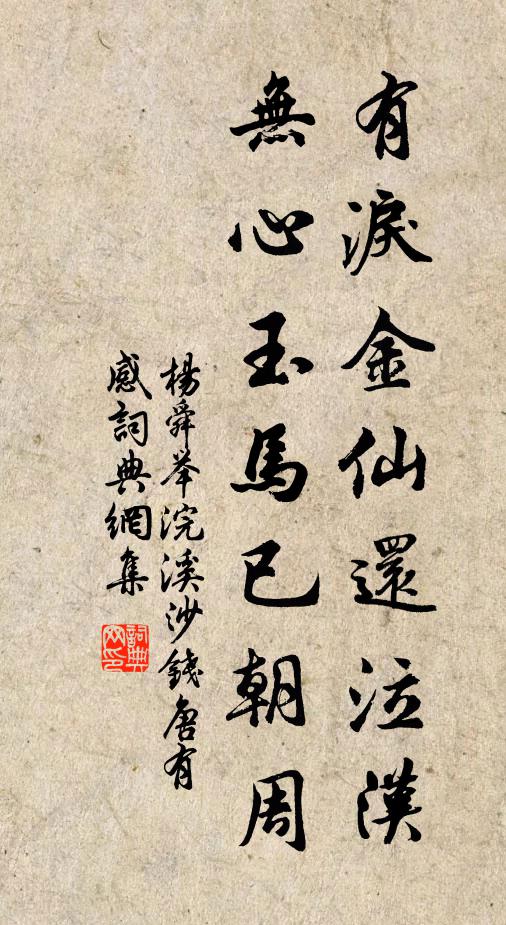 有淚金仙還泣漢
無心玉馬已朝周
楊舜举浣溪沙錢唐有
感詞典網集
詞典网印